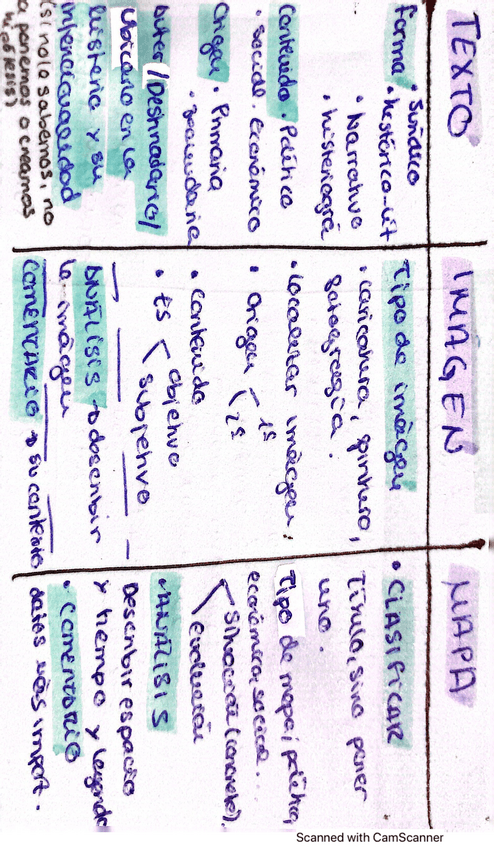 TEXTO
Forma • Jurídico
• histórico-lit
• Narrativo
• historiográ
Contenido • Político
• social • Económico
Origen • Primaria
• Secundaria
Autor/Destinatario/
Ubicarlo en la
historia y su
intencionalidad
(si no lo sabemos, no
o creamos
hipótesis)
IMAGEN
Tipo de imagen
• caricatura, pintura,
fotografía.
• localizar imagen,
• origen < 1ª
2ª
• contenido
• Es < objetivo
subjetivo
ANÁLISIS → describir
la imagen
COMENTARIO → su contexto
MAPA
• CLASIFICAR
Título, sino poner
uno.
Tipo de mapa; política,
económica, social...
< Situación (concreto).
evolución
• ANÁLISIS
Describir espacio
y tiempo y leyenda
• COMENTARIO
datos más import.
Scanned with CamScanner